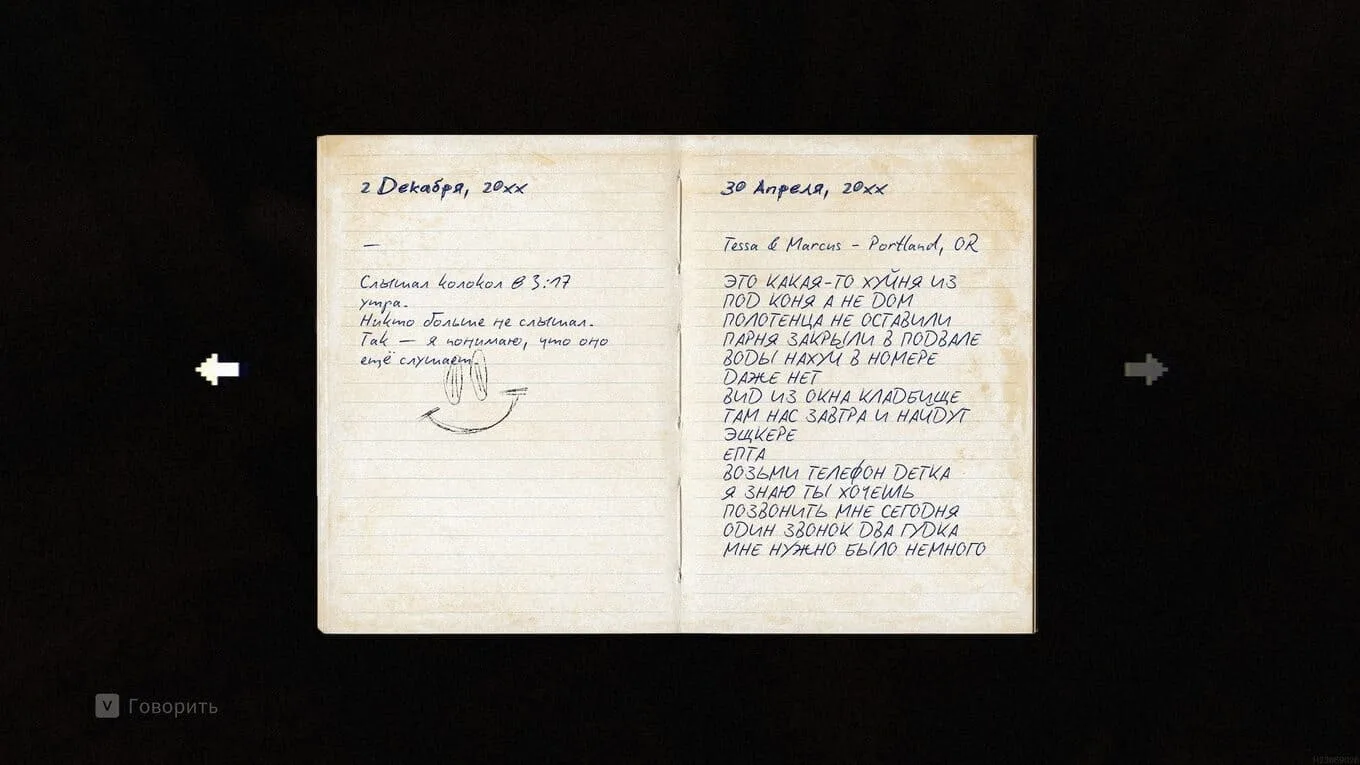 2 Декабря, 20xx
—
Слышал колокол в 3:17
утра.
Никто больше не слышал.
Так — я понимаю, что оно
ещё слушает.
30 Апреля, 20xx
Tessa & Marcus - Portland, OR
ЭТО КАКАЯ-ТО ХУЙНЯ ИЗ
ПОД КОНЯ А НЕ ДОМ
ПОЛОТЕНЦА НЕ ОСТАВИЛИ
ПАРНЯ ЗАКРЫЛИ В ПОДВАЛЕ
ВОДЫ НАХУЙ В НОМЕРЕ
ДАЖЕ НЕТ
ВИД ИЗ ОКНА КЛАДБИЩЕ
ТАМ НАС ЗАВТРА И НАЙДУТ
ЭЩКЕРЕ
ЕПТА
ВОЗЬМИ ТЕЛЕФОН ДЕТКА
Я ЗНАЮ ТЫ ХОЧЕШЬ
ПОЗВОНИТЬ МНЕ СЕГОДНЯ
ОДИН ЗВОНОК ДВА ГУДКА
МНЕ НУЖНО БЫЛО НЕМНОГО
V Говорить